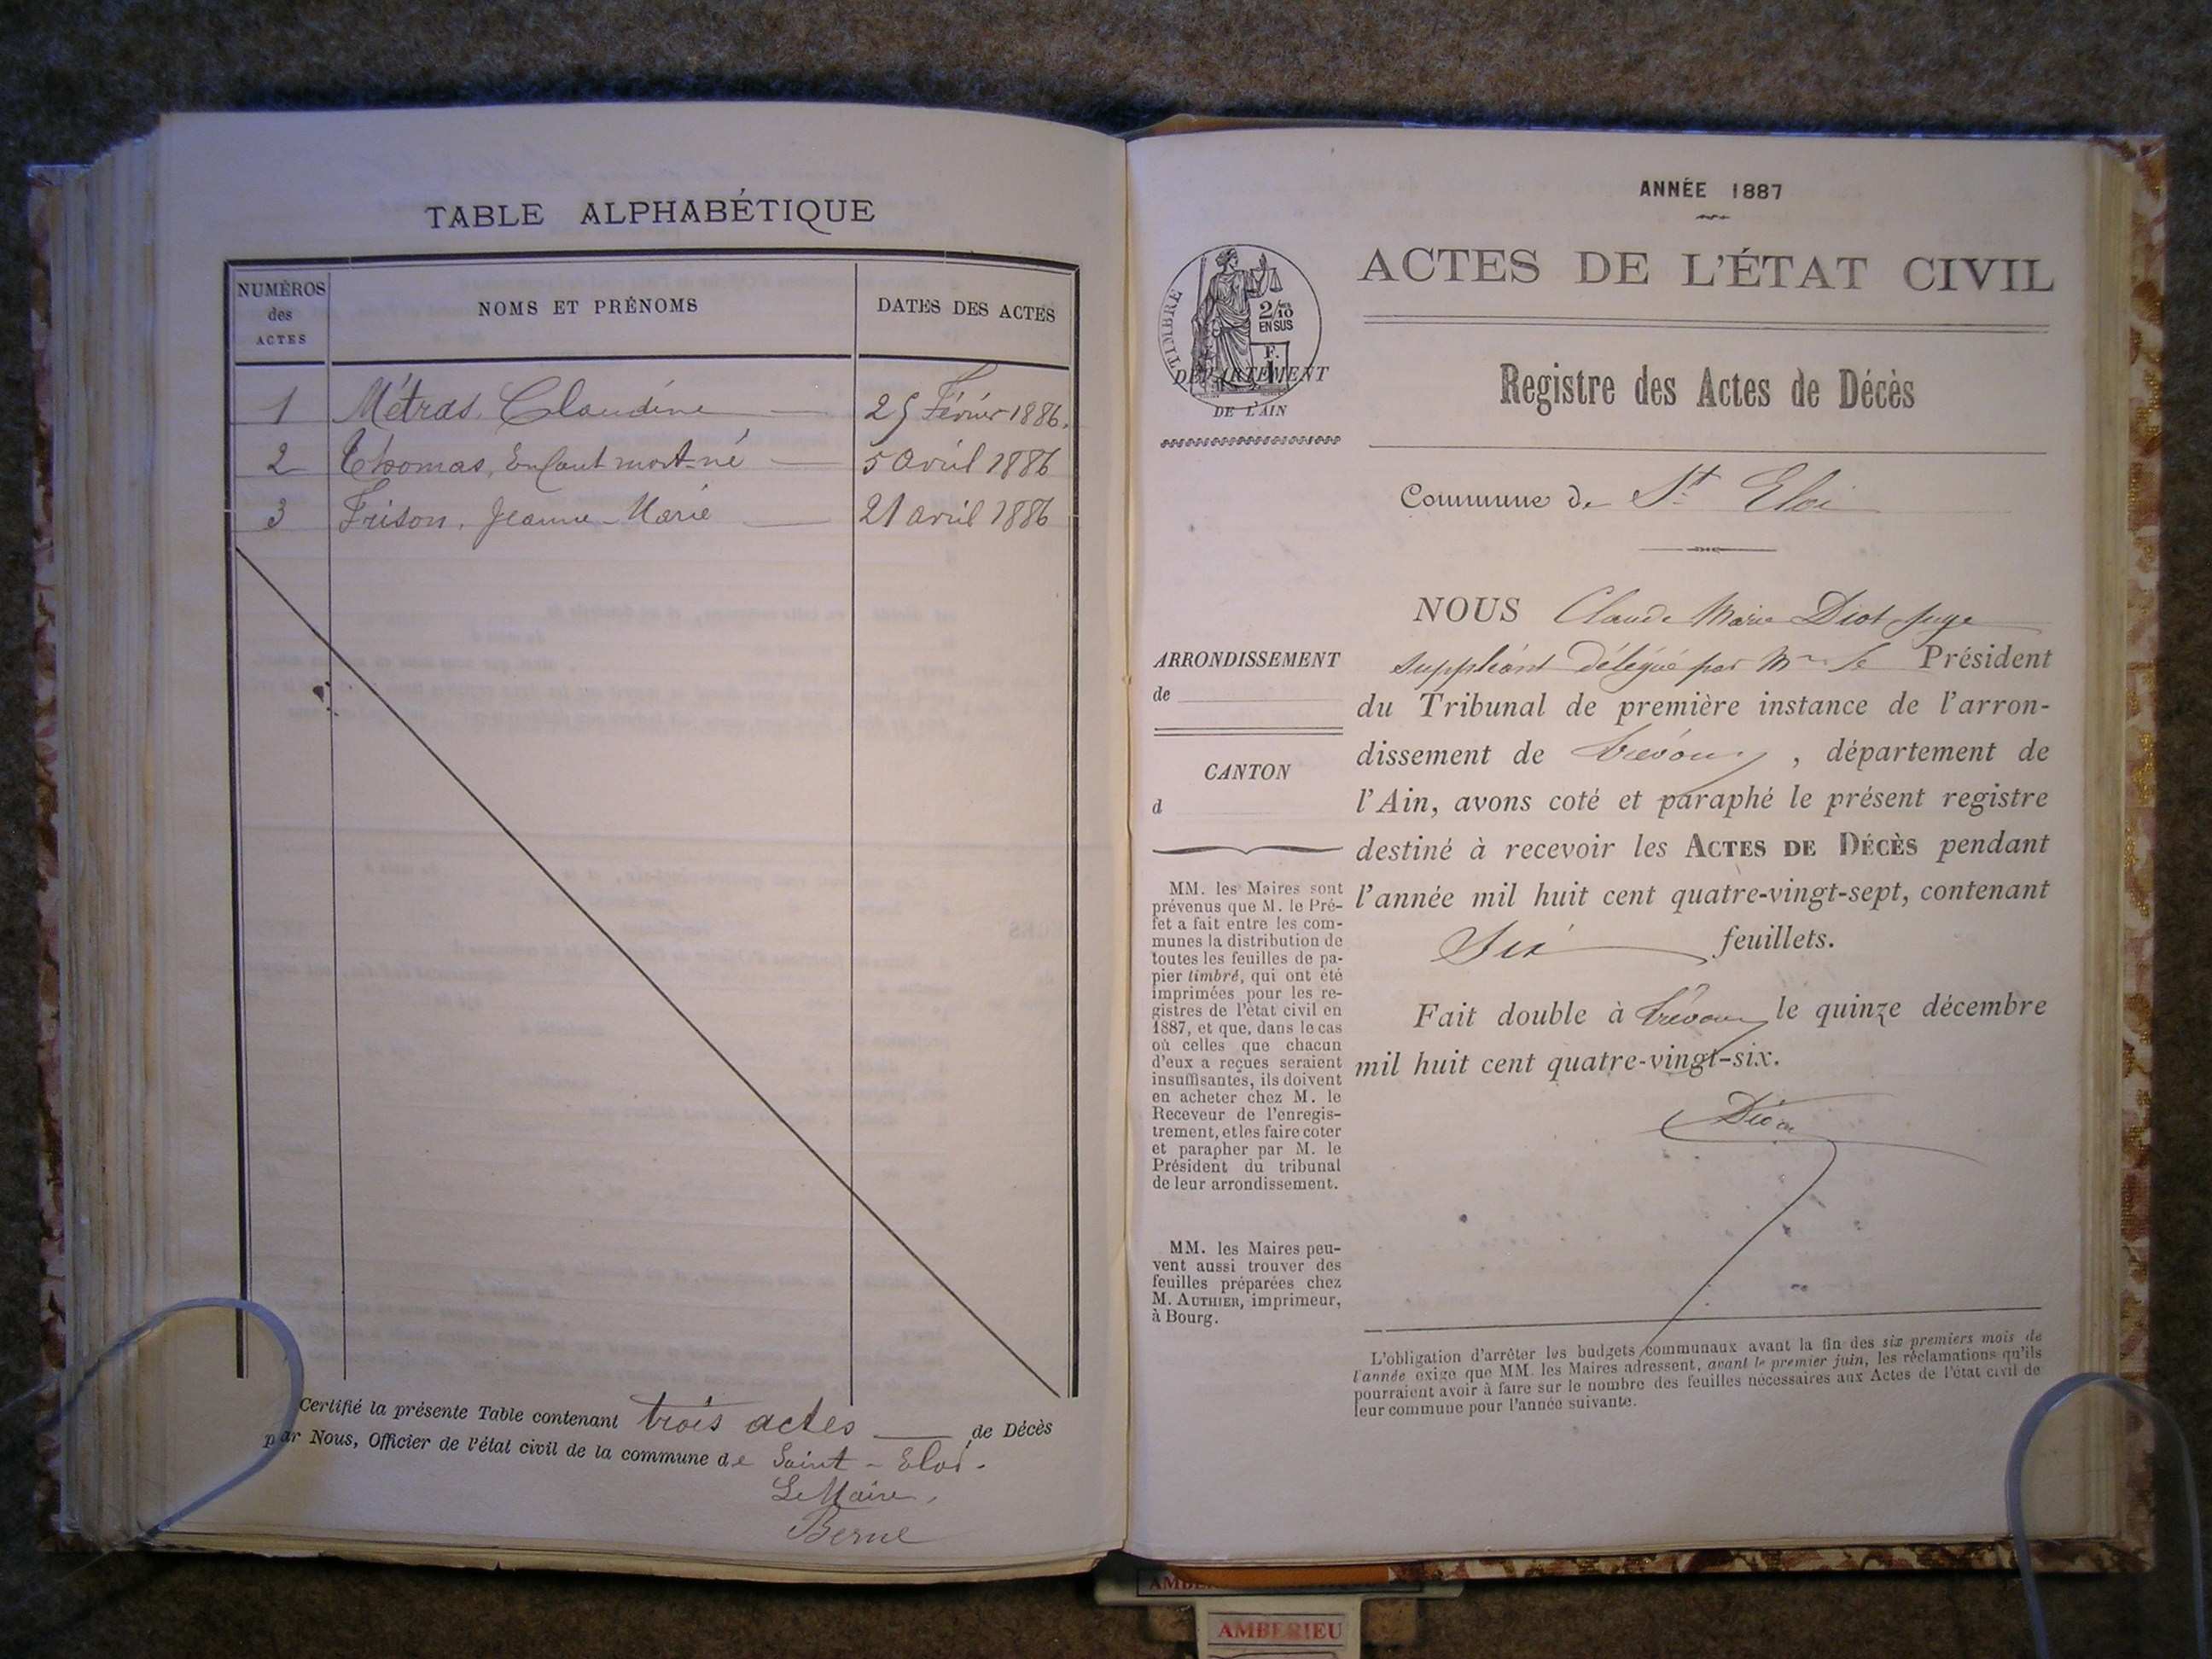 TABLE ALPHABÉTIQUE
NUMÉROS
des
ACTES
NOMS ET PRÉNOMS
DATES DES ACTES
1 Métras, Claudine 25 Février 1886.
2 Thomas, Enfant mort-né 5 avril 1886
3 Frison, Jeanne-Marie 21 avril 1886
Certifié la présente Table contenant trois actes de Décès
par Nous, Officier de l'état civil de la commune de Saint-Eloi.
Le Maire,
Berne
ANNÉE 1887
ACTES DE L'ÉTAT CIVIL
TIMBRE
2/10
EN SUS
F.
1
DÉPARTEMENT
DE L'AIN
Registre des Actes de Décès
Commune de St Eloi
NOUS Claude Marie Diot juge
suppléant délégué par Mr le Président
du Tribunal de première instance de l'arron-
dissement de Trévoux, département de
l'Ain, avons coté et paraphé le présent registre
destiné à recevoir les ACTES DE DÉCÈS pendant
l'année mil huit cent quatre-vingt-sept, contenant
Six feuillets.
Fait double à Trévoux le quinze décembre
mil huit cent quatre-vingt-six.
Diot
ARRONDISSEMENT
de
CANTON
d
MM. les Maires sont
prévenus que M. le Pré-
fet a fait entre les com-
munes la distribution de
toutes les feuilles de pa-
pier timbré, qui ont été
imprimées pour les re-
gistres de l'état civil en
1887, et que, dans le cas
où celles que chacun
d'eux a reçues seraient
insuffisantes, ils doivent
en acheter chez M. le
Receveur de l'enregis-
trement, et les faire coter
et parapher par M. le
Président du tribunal
de leur arrondissement.
MM. les Maires peu-
vent aussi trouver des
feuilles préparées chez
M. AUTHIER, imprimeur,
à Bourg.
L'obligation d'arrêter les budgets communaux avant la fin des six premiers mois de
l'année exige que MM. les Maires adressent, avant le premier juin, les réclamations qu'ils
pourraient avoir à faire sur le nombre des feuilles nécessaires aux Actes de l'état civil de
leur commune pour l'année suivante.
AMBERIEU